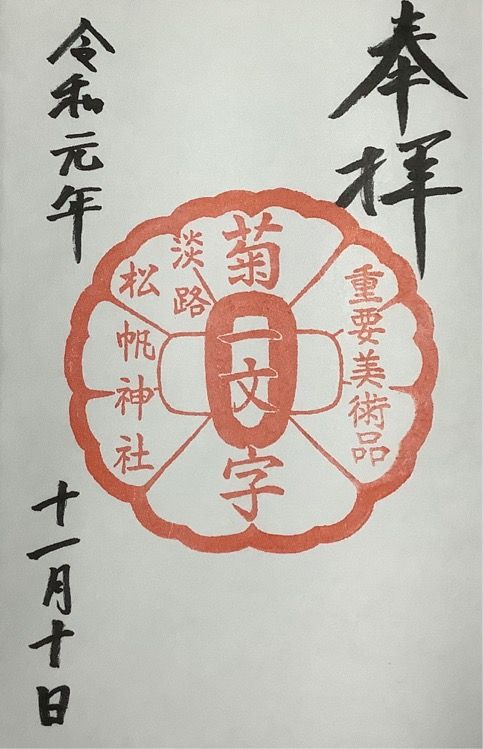 奉拝
重要美術品
菊一文字
淡路
松帆神社
令和元年
十一月十日